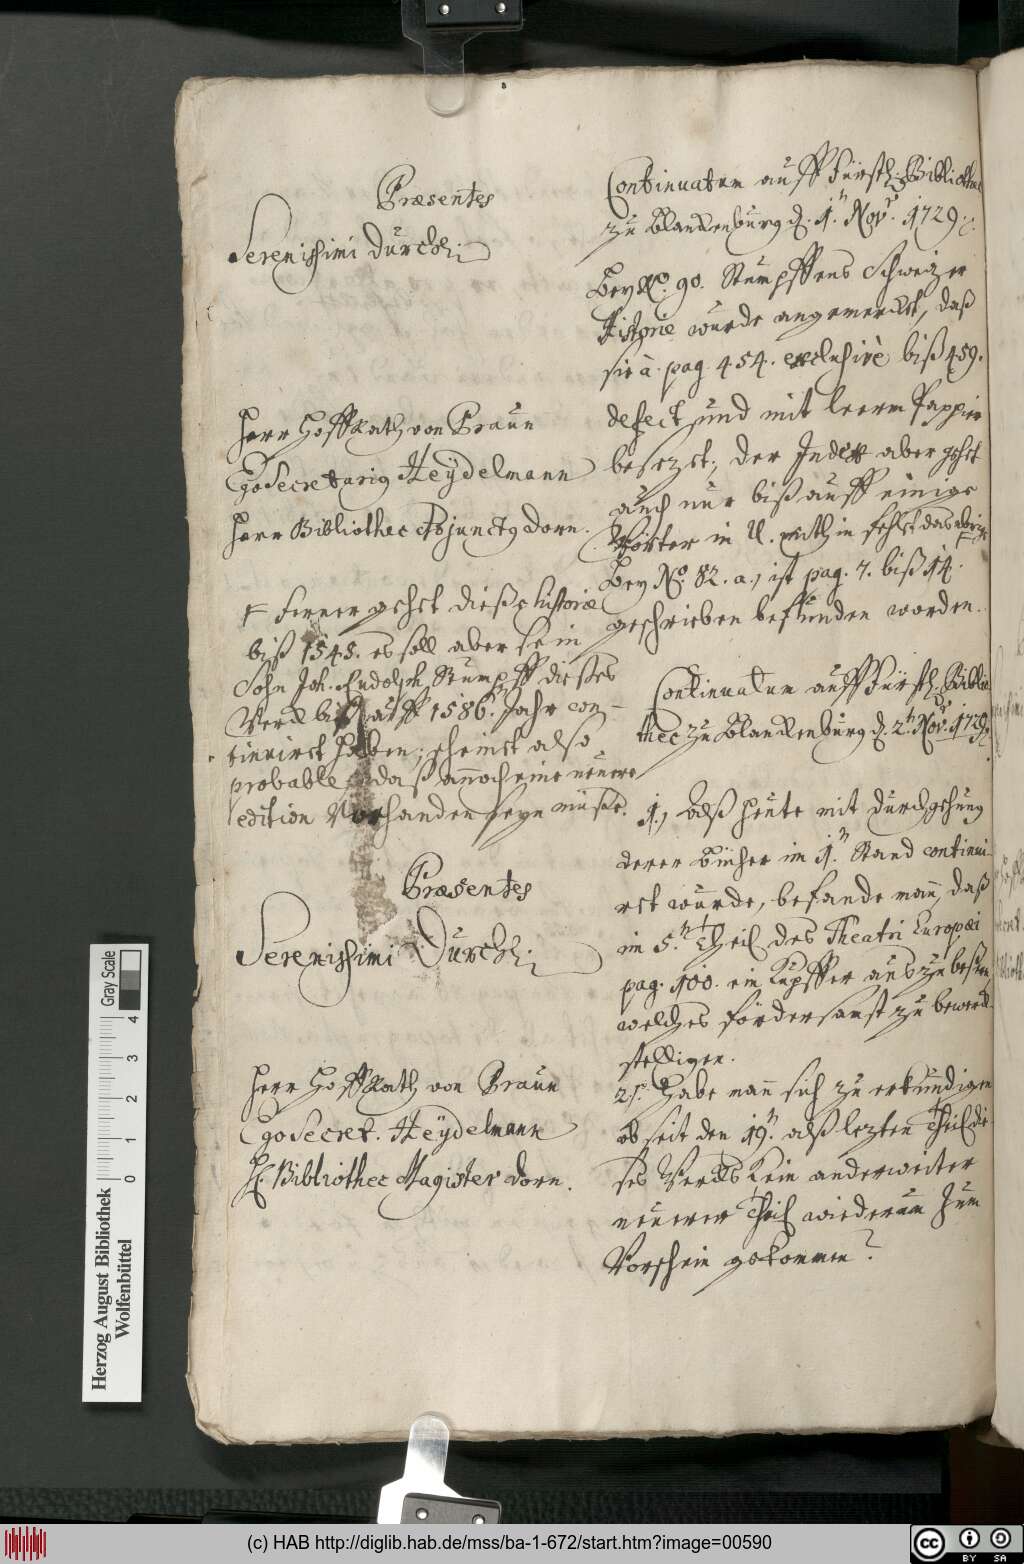 Præsentes
Serenissimi Durchl:
Herr HoffRath von Braun
Ego Secretarig Heÿdelmann
Herr Bibliothec Adjunctg Dorn.
F ferner gehet dieße historie
biß 1545. es soll aber sein
Sohn Joh. Rudolph Stumpff dießes
Werck biß auff 1586. Jahr con-
tinuiret haben; scheinet also
probable, daß annoch eine neuere
edition Vorhanden seyn müße.
Præsentes
Serenissimi Durchl:
Herr HoffRath von Braun
Ego Secret. Heÿdelmann
H. Bibliothec Magister Dorn.
Continuatum auff Fürstl. Bibliothec
zu Blanckenburg d. 1. Nov. 1729.
Bey No. 90. Stumpffens Schweizer
Historie wurde angemercket, daß
sie à pag. 454. exclusivè biß 459.
defect und mit leerm Pappier
besezet; der Index aber gehet
auch nur biß auff einige
Wörter in U. mithin fehlet das übrige
Bey No. 82. a., ist pag. 7. biß 14.
geschrieben befunden worden.
Continuatum auff Fürstl. Biblio
thec zu Blanckenburg d. 2. Nov. 1729.
1., Alß heute mit Durchgehung
derer Bücher im 1. Stand continui-
ret wurde, befande mann, daß
im 5. Theil des Theatri Europæi
pag. 100. ein Kupffer auszubeßern,
welches fördersamst zu bewerck-
stelligen.
2., Habe mann sich zu erkundigen
ob seit den 19. alß lezten Theil die-
ses Wercks kein anderweiter
neuerer Theil wiederum zum
Vorschein gekommen?
Herzog August Bibliothek
Wolfenbüttel
0 1 2 3 4
Gray Scale
(c) HAB http://diglib.hab.de/mss/ba-1-672/start.htm?image=00590
cc BY SA